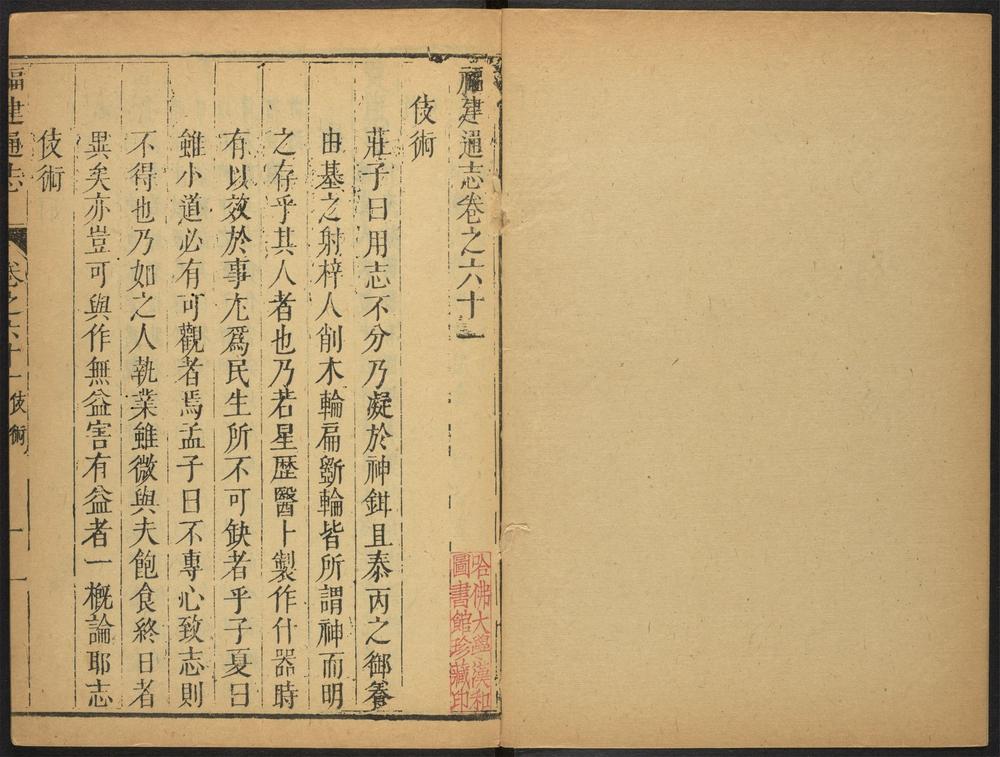 福建通志卷之六十一
伎術
莊子曰用志不分乃凝於神鉗且泰丙之御養
由基之射梓人削木輪扁斲輪皆所謂神而明
之存乎其人者也乃若星歷醫卜製作什器時
有以效於事尤爲民生所不可缺者乎子夏曰
雖小道必有可觀者焉孟子曰不專心致志則
不得也乃如之人執業雖微與夫飽食終日者
異矣亦豈可與作無益害有益者一概論耶志
伎術
福建通志
卷之六十一
伎術
一
哈佛大學漢和
圖書館珍藏印